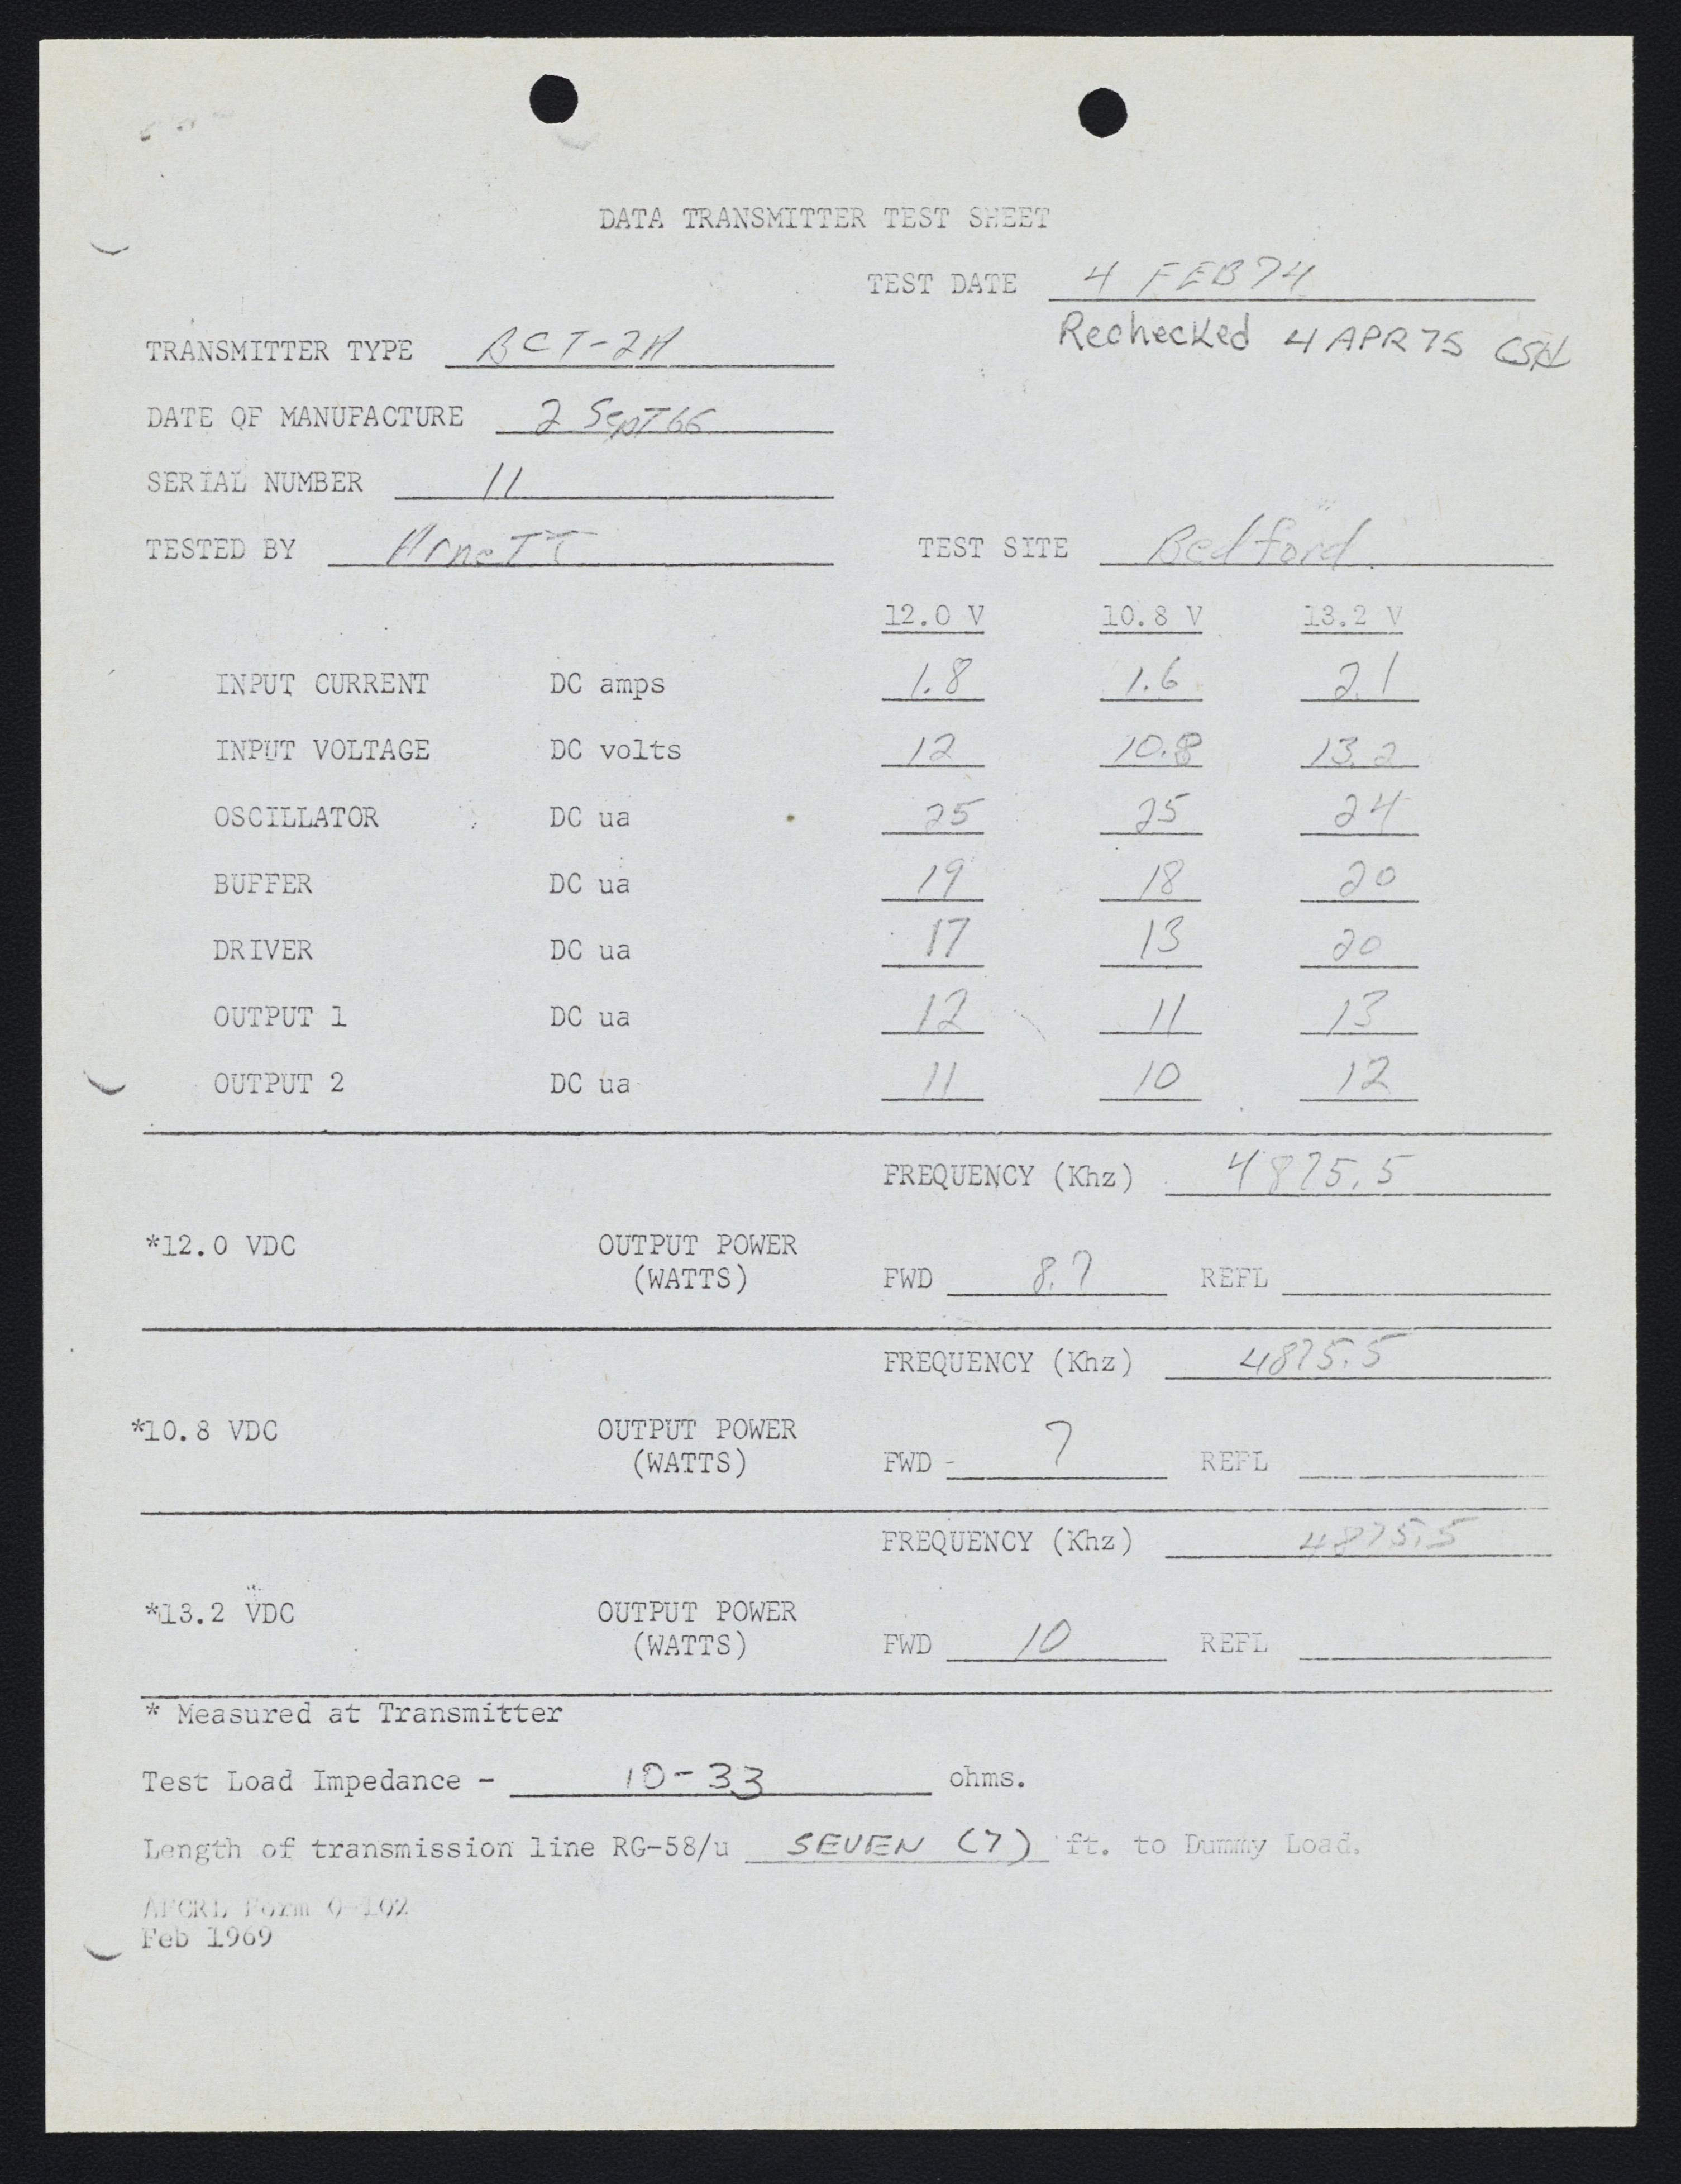 DATA TRANSMITTER TEST SHEET
TEST DATE 4 FEB 74
Rechecked 4 APR 75 CSH
TRANSMITTER TYPE BCT-2A
DATE OF MANUFACTURE 2 SepT 66
SERIAL NUMBER 11
TESTED BY ArneTT TEST SITE Bedford
12.0 V 10.8 V 13.2 V
INPUT CURRENT DC amps 1.8 1.6 2.1
INPUT VOLTAGE DC volts 12 10.8 13.2
OSCILLATOR DC ua 25 25 24
BUFFER DC ua 19 18 20
DRIVER DC ua 17 13 20
OUTPUT 1 DC ua 12 11 13
OUTPUT 2 DC ua 11 10 12
FREQUENCY (Khz) 4875.5
*12.0 VDC OUTPUT POWER
(WATTS) FWD 8.7 REFL
FREQUENCY (Khz) 4875.5
*10.8 VDC OUTPUT POWER
(WATTS) FWD - 7 REFL
FREQUENCY (Khz) 4875.5
*13.2 VDC OUTPUT POWER
(WATTS) FWD 10 REFL
* Measured at Transmitter
Test Load Impedance - 10-33 ohms.
Length of transmission line RG-58/u SEVEN (7) ft. to Dummy Load.
AFCRL Form 0-102
Feb 1969